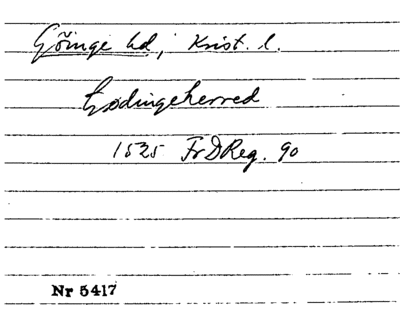 Göinge hd, Krist. l.
Gødingeherred
1535 FrDReg. 90
Nr 5417